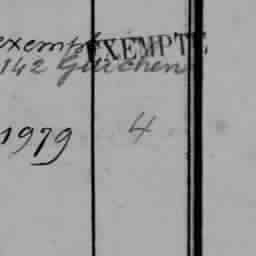 exempté EXEMPTÉ
142 Guichen
1979 4